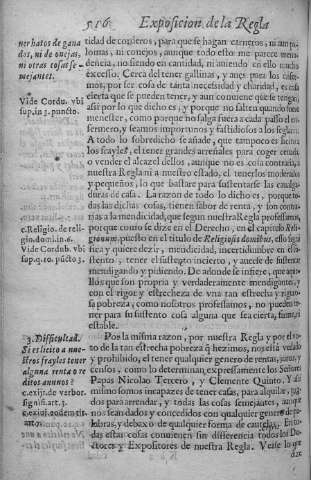 556 Exposicion de la Regla
ner hatos de gana
dos, ni de ouejas,
ni otras cosas se-
mejantes.
Vide Cordu. vbi
sup. in 3. puncto.
c. Religio. de reli-
gio. domi. in. 6.
Vide Cordu. vbi
sup. q. 10. pũcto 3.
3. Dificultad.
Si es licito a nue-
stros frayles tener
alguna renta o re
ditos annuos?
c. exijt. de verbor.
signifi. art. 3.
tidad de corderos, para que se hagan carneros, ni aun pa
lomas, ni conejos, aunque todo esto me parece
dencia, no siendo en cantidad, ni auiendo en ello mucho
excesso. Cerca del tener gallinas, y anes para los enfer-
mos, por ser cosa de tanta necessidad y charidad, es cosa
cierta que se pueden tener, y aun conuiene que se tengan,
assi por lo que dicho es, y porque no falten quando son
menester, como porque no salga fuera a cada passo el en
fermero, y seamos importunos y fastidiosos a los seglares.
A todo lo sobredicho se añade, que tampoco es licito a
los frayles, el tener grandes arreñales para coger
o vender el alcazel dellos, aunque no es cosa contraria a
nuestra Regla ni a nuestro estado, el tenerlos moderados
y pequeños, lo que bastare para sustentarse las caualga-
duras de casa. La razon de todo lo dicho es, porque to-
das las dichas cosas, tienen sabor de renta, y son contra-
rias a la mendicidad, que segun nuestra Regla professamos,
porque como se dize en el Derecho, en el capitulo Reli-
gionum, puesto en el titulo de Religiosis domibus, ello signi
fica y quiere dezir, mendicidad, incertidumbre en el su-
stento, tener el sustento incierto, y auerse de sustentar
mendigando y pidiendo. De adonde se infiere, que aque
llos que son propria y verdaderamente mendigantes, y
con el rigor y estrecheza de vna tan estrecha y riguro-
sa pobreza, como nosotros professamos, no pueden te-
ner para su sustento cosa alguna que sea cierta, firme, y
estable.
Por la misma razon, por nuestra Regla y por el vo-
to de la tan estrecha pobeza q̃ hezimos, nos està vedado
y prohibido, el tener qualquier genero de rentas, juros, y
censos, como lo determinan expressamente los Señores
Papas Nicolao Tercero, y Clemente Quinto. Y assi
mismo somos incapaces de tener casas, para alquilar, juga
dos para arrendar, y todas las cosas semejantes, aunque
nos sean dados y concedidos con qualquier genero de pa
labras, y debaxo de qualquier forma de cautelas. En to-
das estas cosas conuienen sin differencia todos los Do-
ctores y Expositores de nuestra Regla. Vease lo que
dize